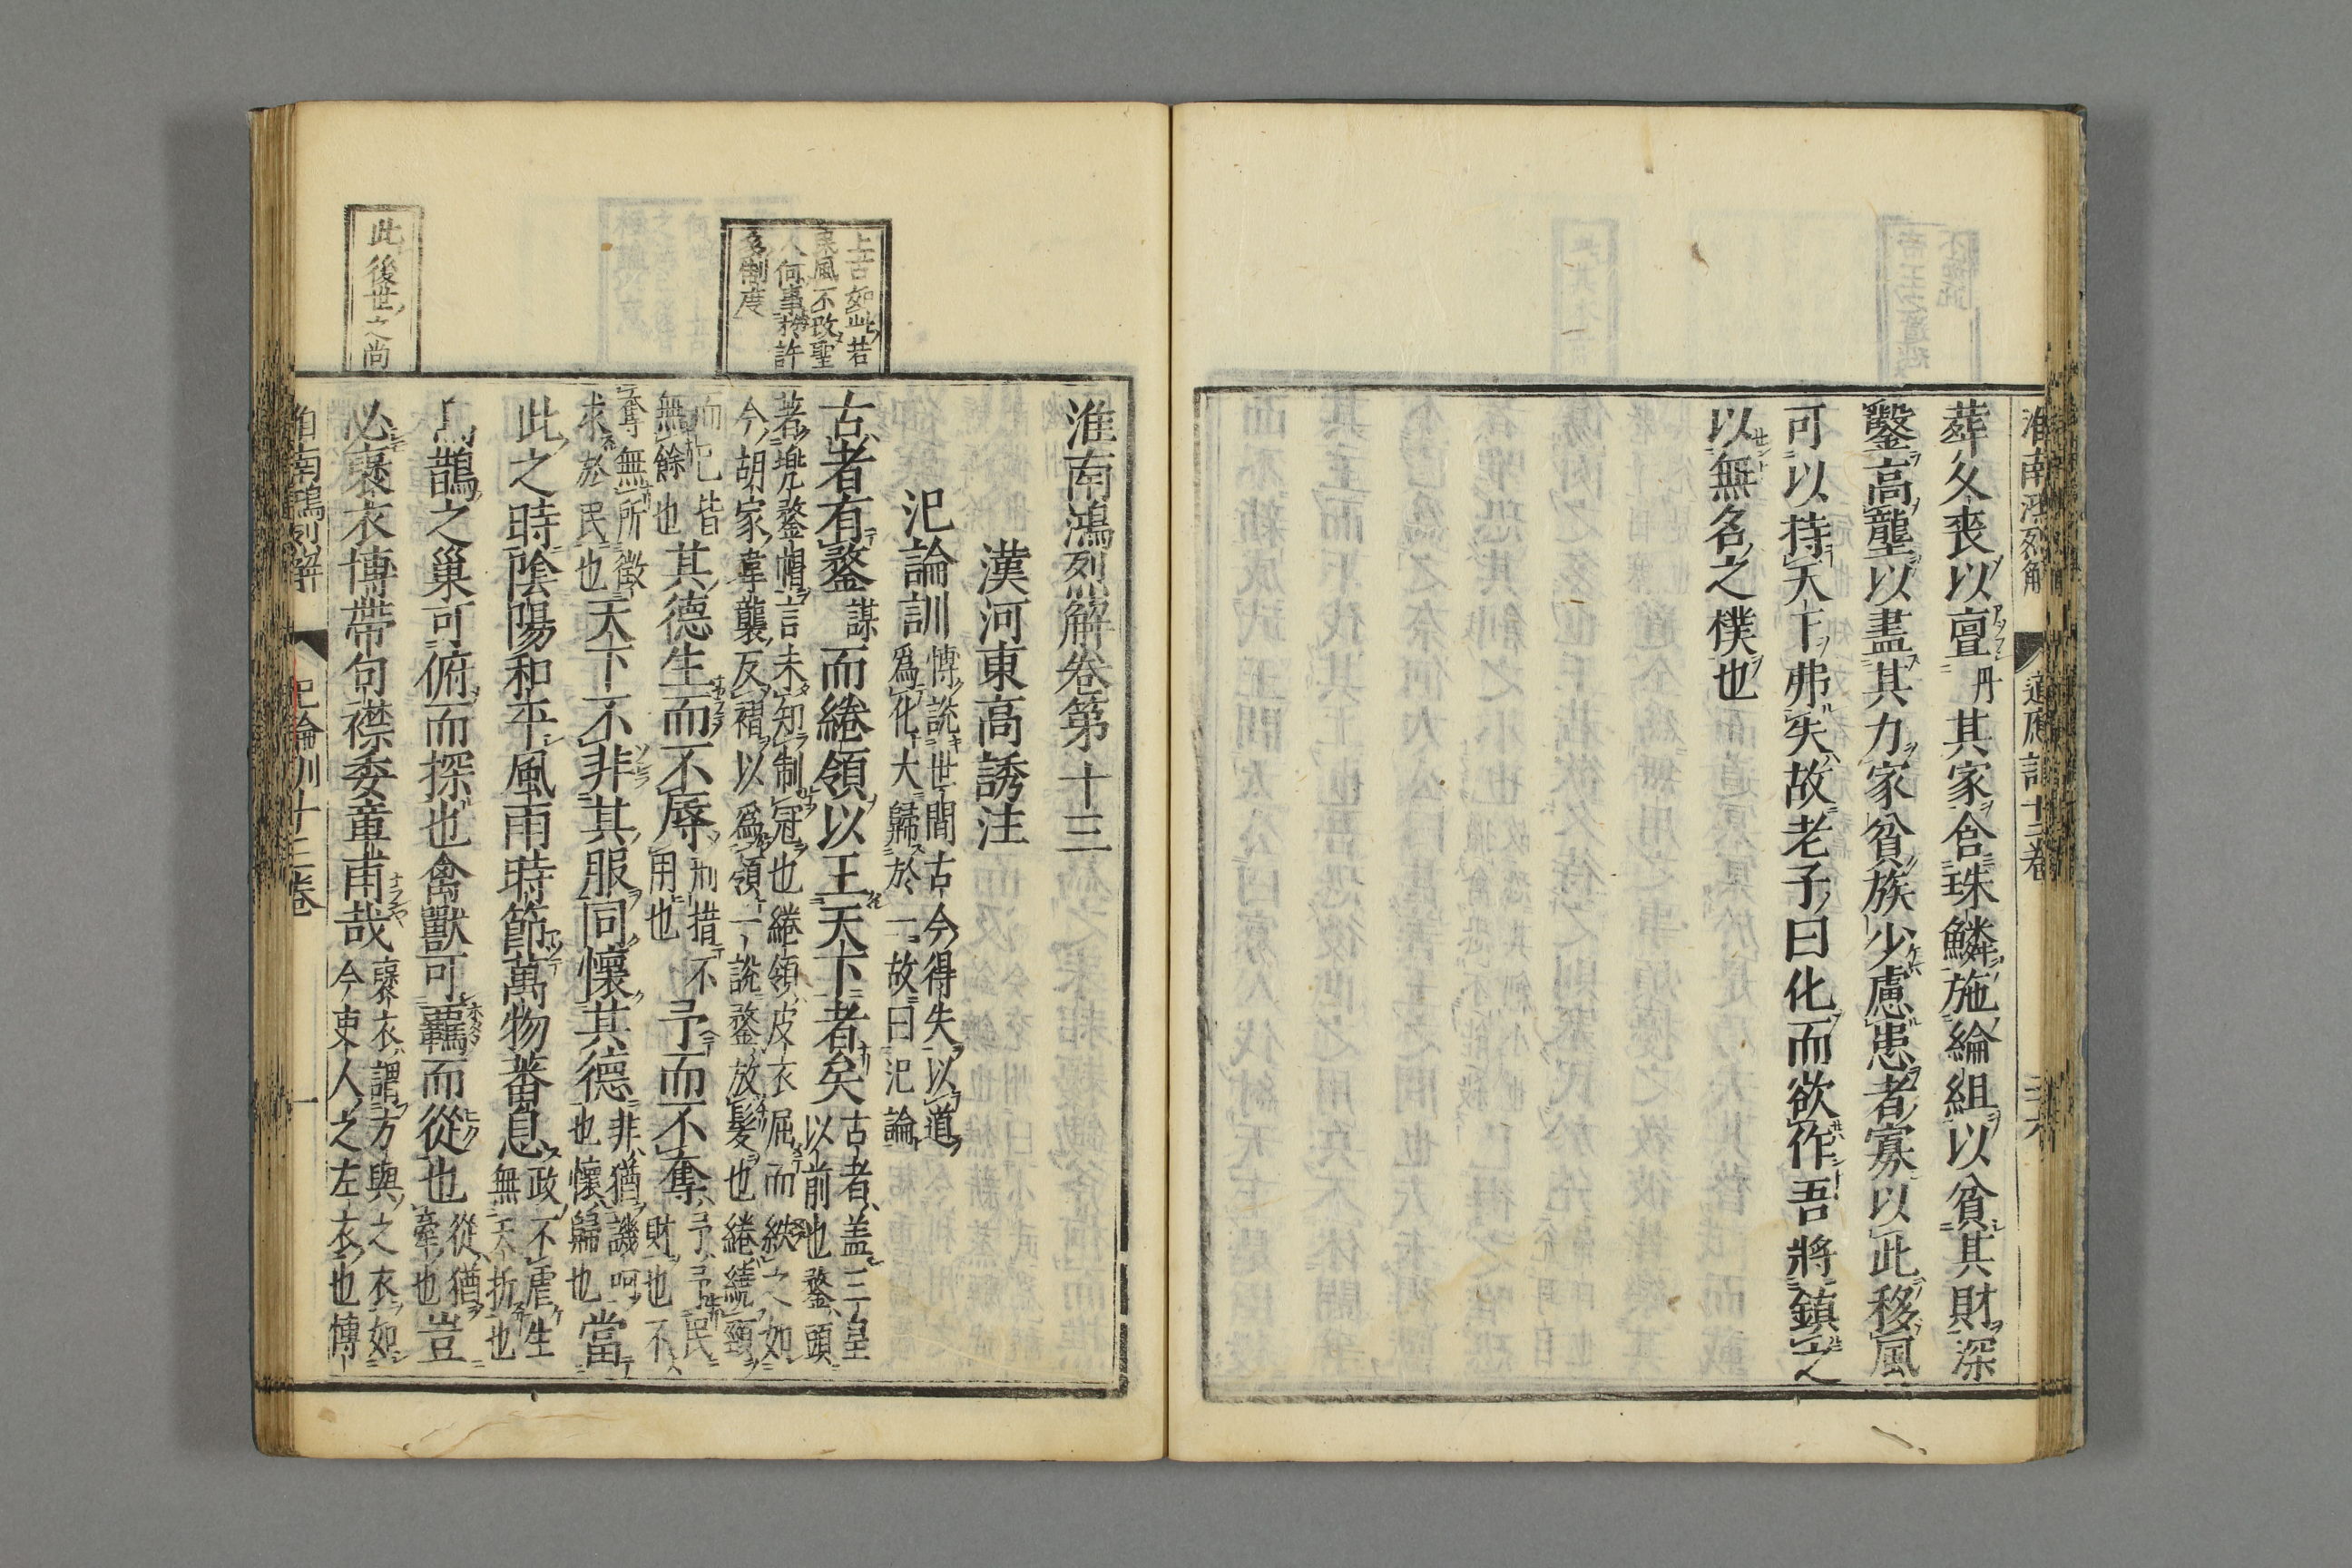 淮南鴻烈解
道應訓十二卷
葬久喪以亶丹其家含珠鱗施綸組以貧其財深
鑿高壟以盡其力家貧族少慮患者寡以此移風
可以持天下弗失故老子曰化而欲作吾將鎮之
以無名之樸也
上古如此若
風不改聖
人何事於許
多制度
此後世之尚
淮南鴻烈解卷第十三
漢河東高誘注
氾論訓
博說世間古今得失以道
爲化大歸於一故曰氾論
古者有鍪謀而綣領以王天下者矣
古者蓋三皇
以前也鍪頭
著兜鍪帽言未知制冠也綣領皮衣屈而紩之如
今胡家韋襲反褶以爲領一說鍪放髮也綣繞頸
而已皆
無餘也
其德生而不辱
刑措不
用也
予而不奪
予予民
財也不
奪無所徵
求於民也
天下不非其服同懷其德
非猶譏呵
也懷歸也
當
此之時陰陽和平風雨時節萬物蕃息
政不虐生
無夭折也
鵲之巢可俯而探也禽獸可羈而從也
從猶
牽也
豈
必褒衣博帶句襟委章甫哉
褒衣謂方與之衣如
今吏人之左衣也博
南鴻烈解
氾論訓十三卷
一